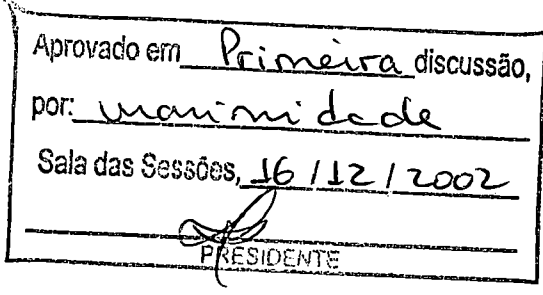 Aprovado em Primeira discussão,
por: unanimidade
Sala das Sessões, 16 / 12 / 2002
PRESIDENTE